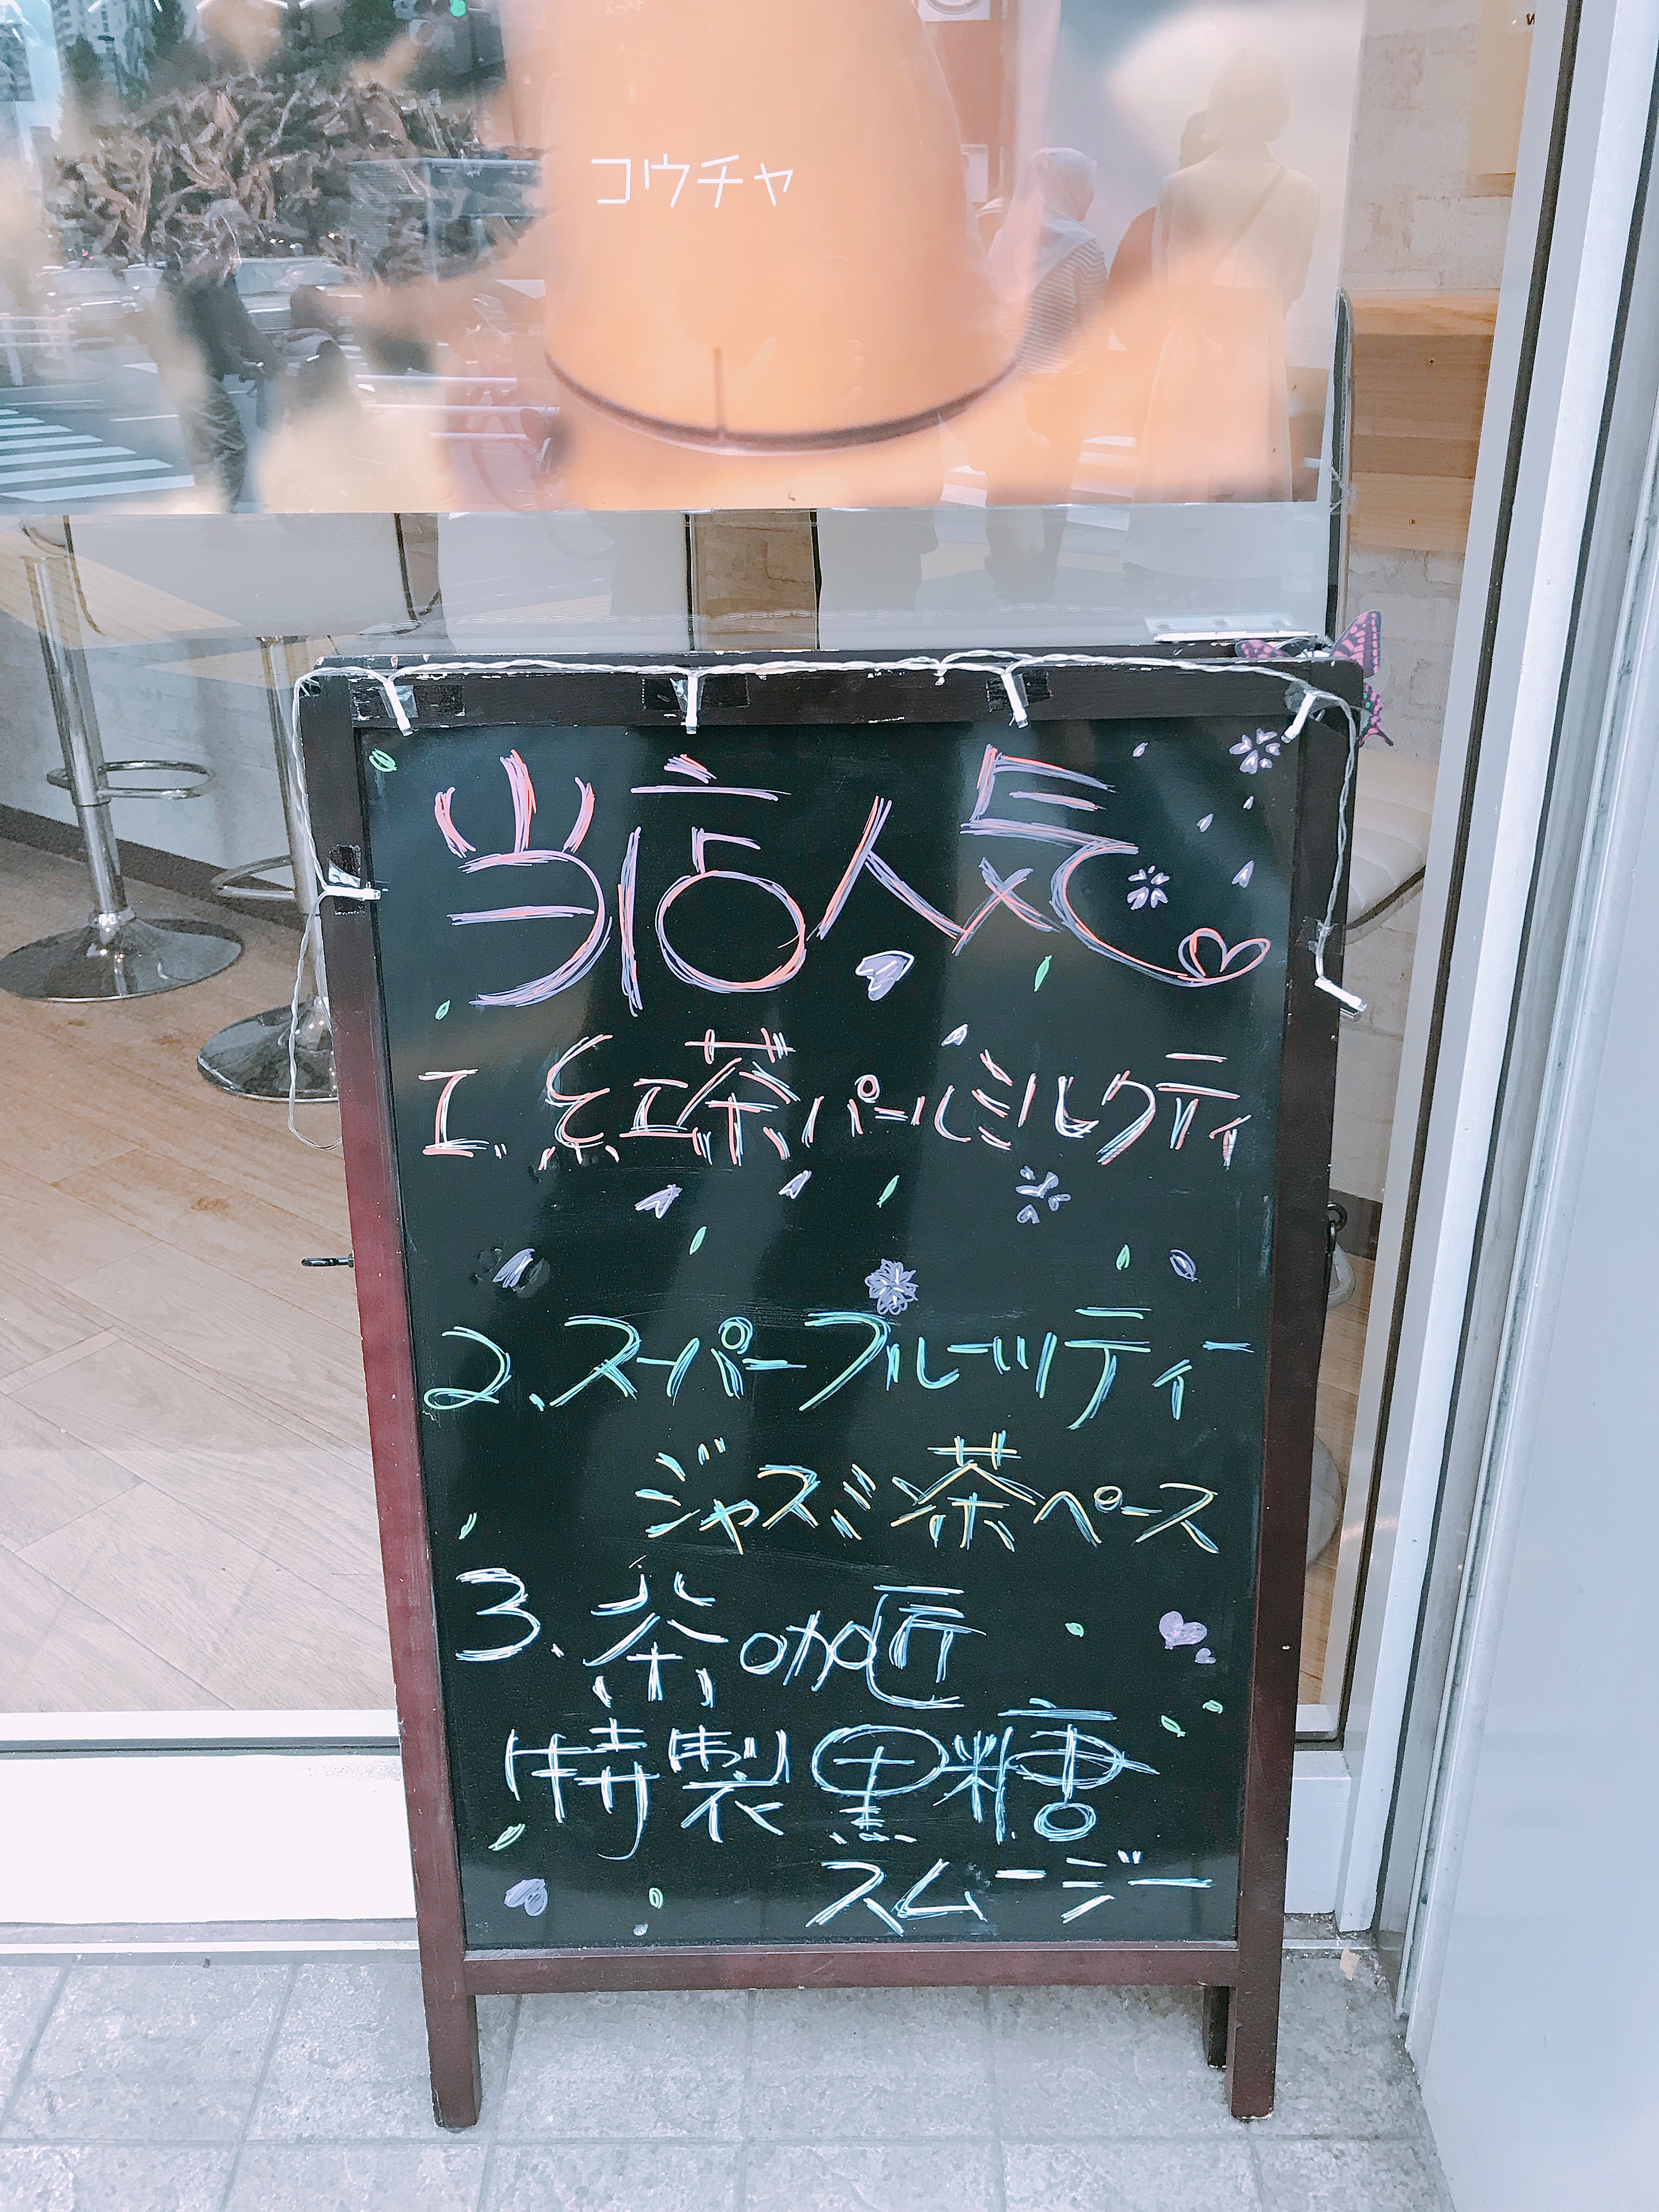 コウチャ
当店人気
1. 紅茶パールミルクティ
2. スーパーフルーツティー
ジャスミン茶ベース
3. 茶咖匠
特製黒糖
スムージー